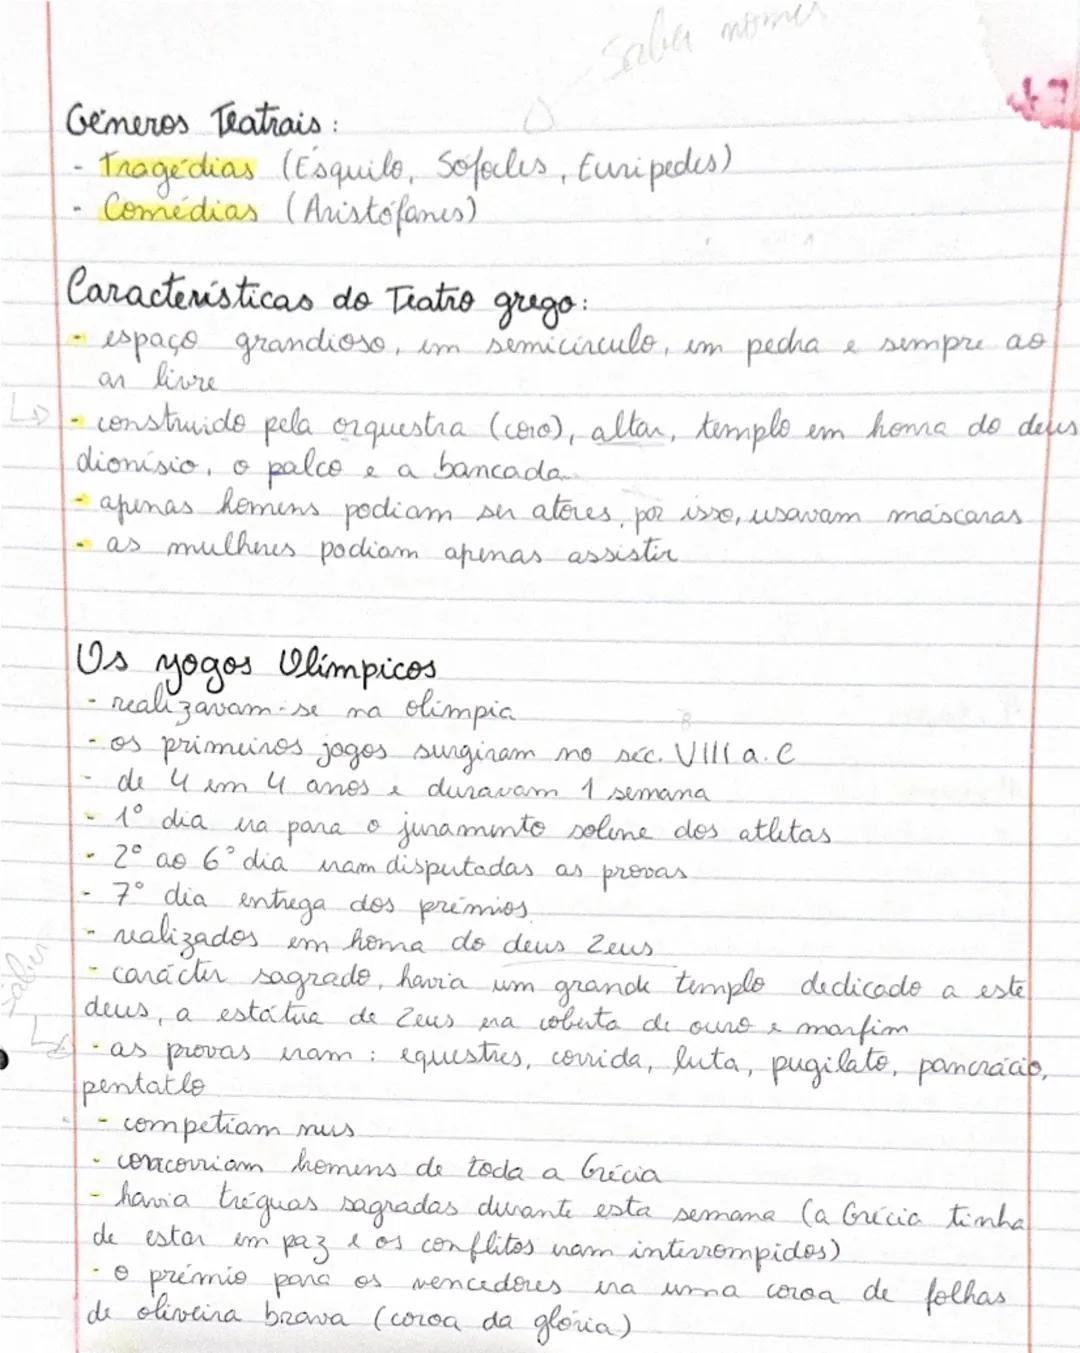 Saber nomes
Géneros Teatrais:
- Tragédias (Ésquilo, Sófocles, Eurípedes)
- Comédias (Aristófanes)
Características do Teatro grego:
- espaço grandioso, em semicírculo, em pedra e sempre ao
ar livre
- construido pela orquestra (coro), altar, templo em honra do deus
dionísio, o palco e a bancada
- apenas homens podiam ser atores, por isso, usavam máscaras
- as mulheres podiam apenas assistir
Os yogos Olímpicos
- realizavam-se na olimpia
- os primeiros jogos surgiram no séc. VIII a.C
- de 4 em 4 anos e duravam 1 semana
- 1º dia era para o juramento solene dos atletas
- 2º ao 6º dia eram disputadas as provas
- 7º dia entrega dos prémios
- realizados em honra do deus Zeus
- carácter sagrado, havia um grande templo dedicado a este
deus, a estátua de Zeus era coberta de ouro e marfim
saber
- as provas eram : equestres, corrida, luta, pugilato, pancrácio,
pentatlo
- competiam nus
- concorriam homens de toda a Grécia
- havia tréguas sagradas durante esta semana (a Grécia tinha
de estar em paz e os conflitos eram interrompidos)
- o prémio para os vencedores era uma coroa de folhas
de oliveira brava (coroa da glória)